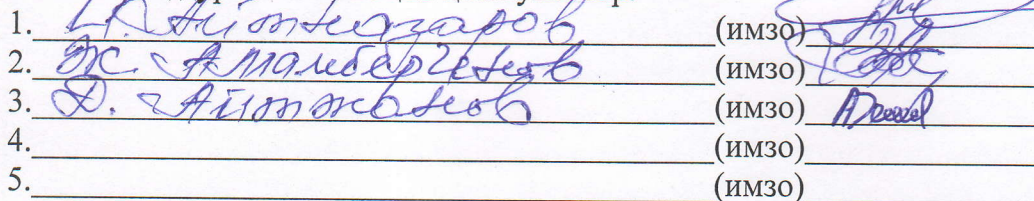 1. Айтназаров (имзо)
2. Ж. Атамбергенов (имзо)
3. Д. Айтжанов (имзо)
4. (имзо)
5. (имзо)